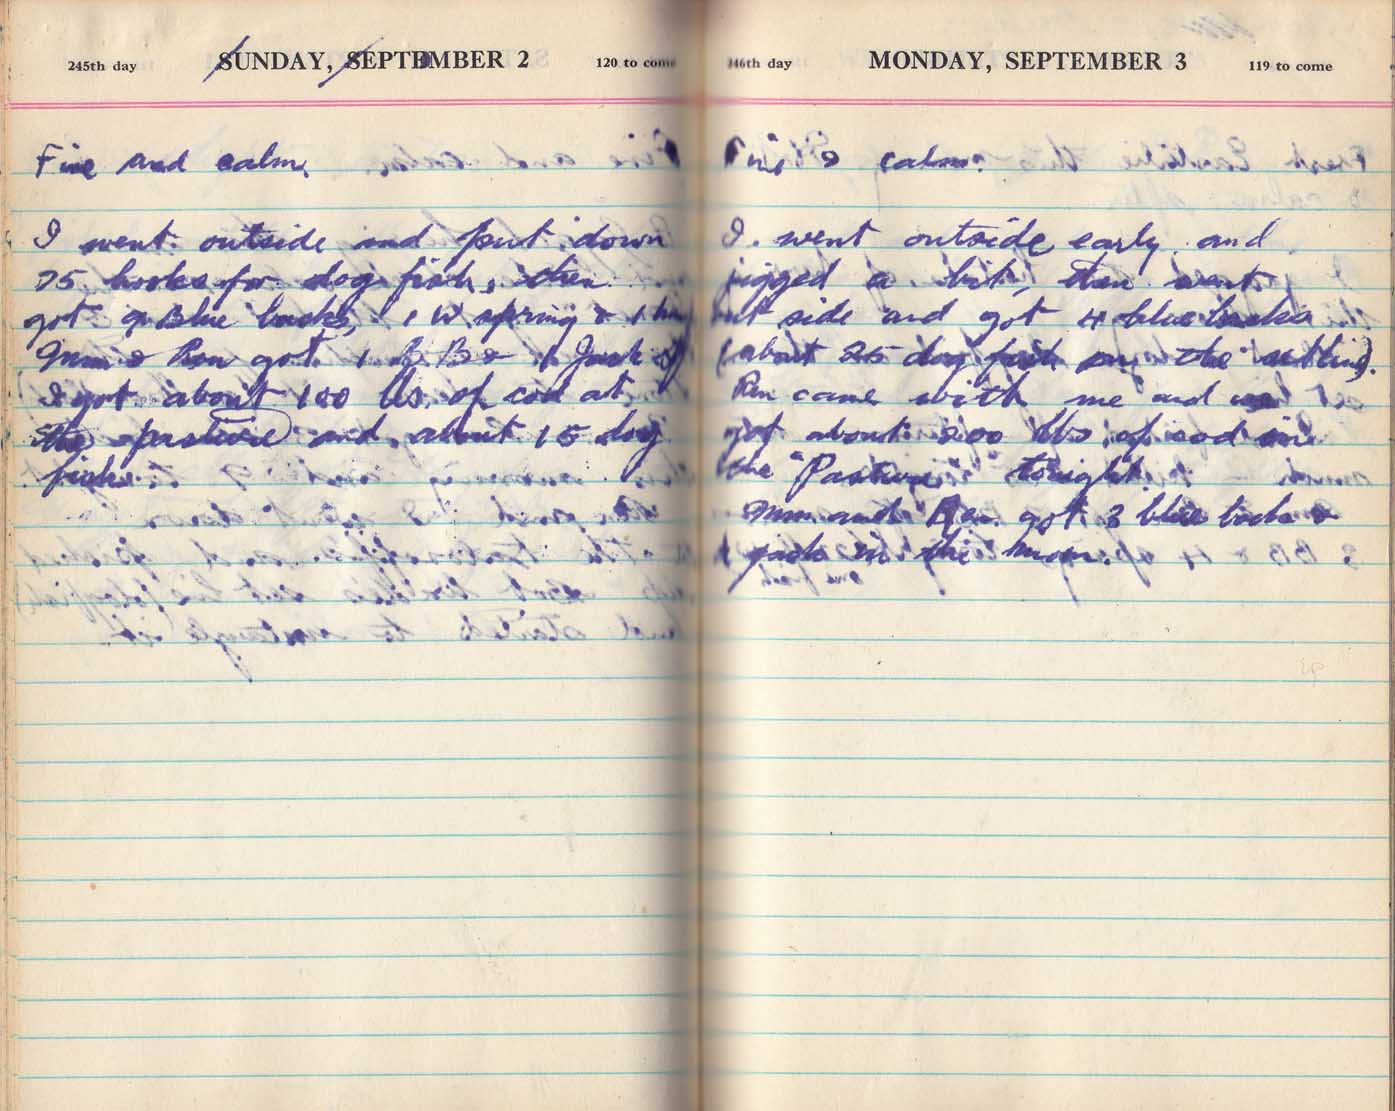 245th day SUNDAY, SEPTEMBER 2 120 to come
Fine and calm.
I went outside and put down
75 hooks for dog fish, then
got 9 Blue backs, 1 W spring & 1
Mum & Ron got 1 B B & 1 Jack
I got about 100 lbs. of cod at
the pasture and about 15 dog
fish.
246th day MONDAY, SEPTEMBER 3 119 to come
Fine & calm.
I went outside early and
jigged a bit, then went
out side and got 4 blue backs
(about 25 dog fish on the set line).
Ron came with me and we
got about 200 lbs of cod in
the "Pasture" tonight.
Mum and Ron got 3 blue backs &
1 jack in the